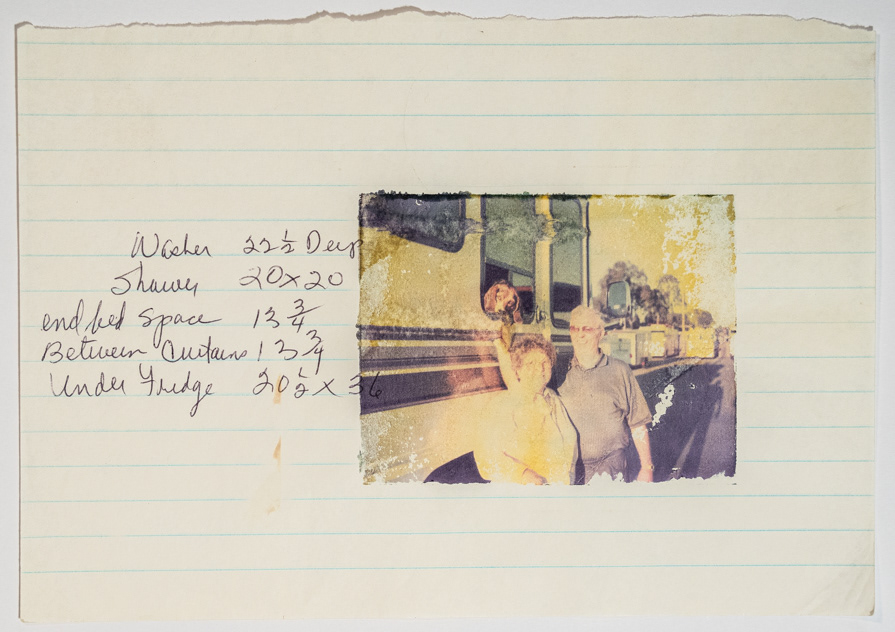 Washer 22 1/2 Deep
Shower 20x20
end bed space 13 3/4
Between Curtains 13 3/4
Under Fridge 20 1/2 x 36